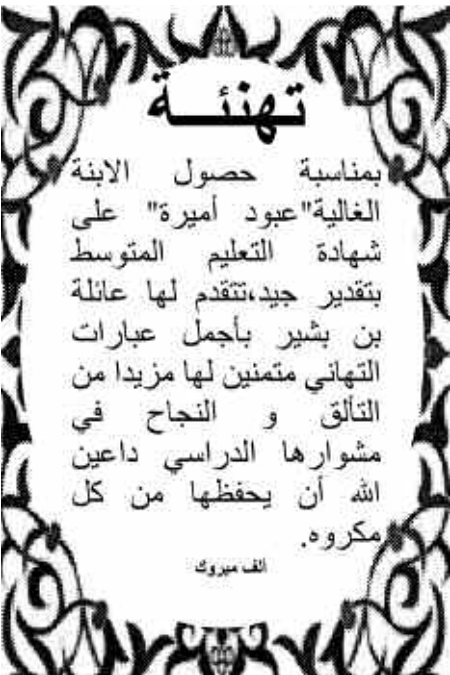 تهنئة
بمناسبة حصول الابنة
الغالية"عبود أميرة" على
شهادة التعليم المتوسط
بتقدير جيد،تتقدم لها عائلة
بن بشير بأجمل عبارات
التهاني متمنين لها مزيدا من
التألق و النجاح في
مشوارها الدراسي داعين
الله أن يحفظها من كل
مكروه.
الف مبروك